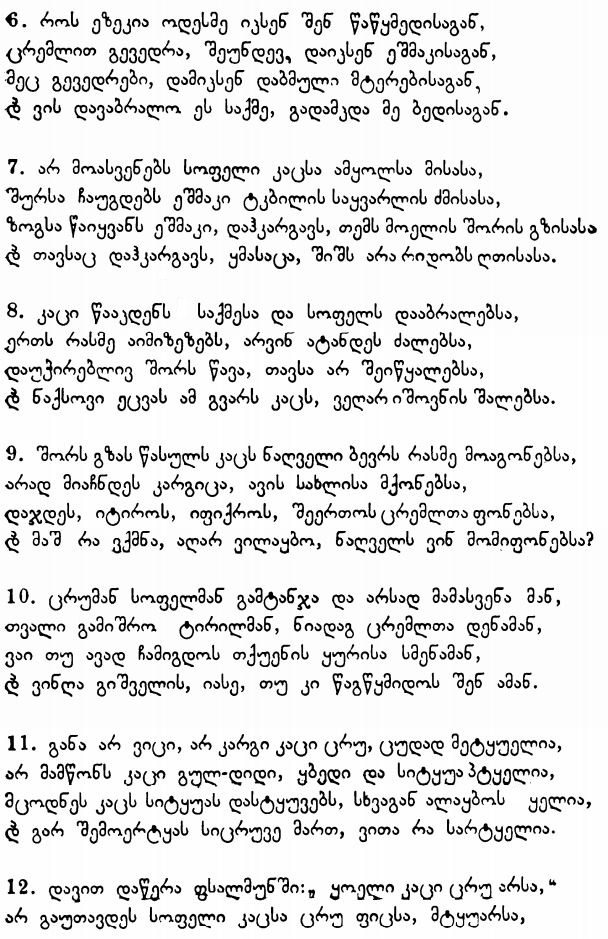 6. როს ეზეკია ოდესმე იჴსენ შენ წაწყმედისაგან,
ცრემლით გევედრა, შეუნდევ, დაიჴსენ ეშმაკისაგან,
მეც გევედრები, დამიჴსენ დაბმული მტერებისაგან,
ჵ ვის დავაბრალო ეს საქმე, გადამჴდა მე ბედისაგან.

7. არ მოასვენებს სოფელი კაცსა ამყოლსა მისასა,
შურსა ჩაუგდებს ეშმაკი ტკბილის საყვარლის ძმისასა,
ზოგსა წაიყვანს ეშმაკი, დაჰკარგავს, თემს მოელის შორის გზისასა
ჵ თავსაც დაჰკარგავს, ყმასაცა, შიშს არა რიდობს ღთისასა.

8. კაცი წააჴდენს საქმესა და სოფელს დააბრალებსა,
ერთს რასმე აიმიზეზებს, არვინ ატანდეს ძალებსა,
დაუჭირებლივ შორს წავა, თავსა არ შეიწყალებსა,
ჵ ნაქსოვი ეცვას ამ გვარს კაცს, ვეღარ იშოვნის შალებსა.

9. შორს გზას წასულს კაცს ნაღველი ბევრს რასმე მოაგონებსა,
არად მიაჩნდეს კარგიცა, ავის სახლისა მქონებსა,
დაჯდეს, იტიროს, იფიქროს, შეერთოს ცრემლთა ფონებსა,
ჵ მაშ რა ვქმნა, აღარ ვილაყბო, ნაღველს ვინ მომიფონებსა?

10. ცრუმან სოფელმან გამტანჯა და არსად მამასვენა მან,
თვალი გამიშრო ტირილმან, ნიადაგ ცრემლთა დენამან,
ვაი თუ ავად ჩამიგდოს თქუენის ყურისა სმენამან,
ჵ ვინღა გიშველის, იასე, თუ კი წაგწყმიდოს შენ ამან.

11. განა არ ვიცი, არ კარგი კაცი ცრუ, ცუდად მეტყუელია,
არ მამწონს კაცი გულ-დიდი, ყბედი და სიტყუა პტყელია,
მცოდნეს კაცს სიტყუას დასტყუვებს, სხვაგან ალაყბოს ყელია,
ჵ გარ შემოერტყას სიცრუვე მართ, ვითა რა სარტყელია.

12. დავით დაწერა ფსალმუნში: „ ყოელი კაცი ცრუ არსა,“
არ გაუთავდეს სოფელი კაცსა ცრუ ფიცსა, მტყუარსა,